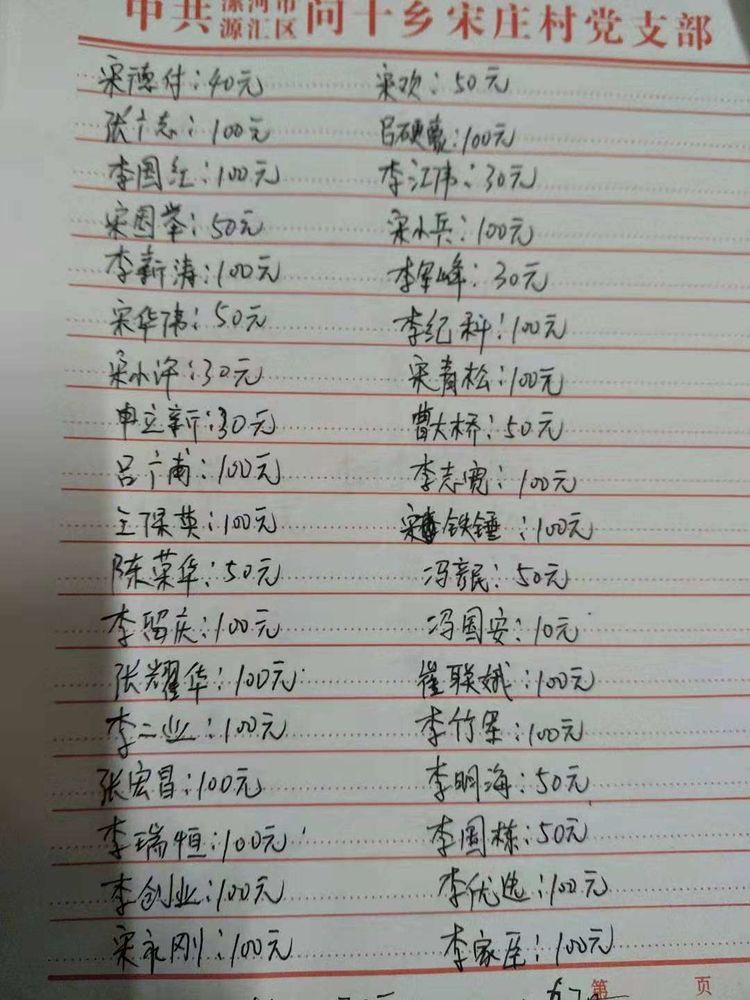 中共漯河市源汇区问十乡宋庄村党支部
宋德付：40元 宋欢：50元
张广志：100元 吕硬蒙：100元
李国红：100元 李江伟：30元
宋国举：50元 宋小兵：100元
李新涛：100元 李军峰：30元
宋华伟：50元 李纪科：100元
宋小许：30元 宋青松：100元
申立新：30元 曹大桥：50元
吕广甫：100元 李志宽：100元
王保英：100元 宋铁锤：100元
陈荣华：50元 冯彦民：50元
李留庆：100元 冯国安：10元
张耀华：100元 崔联娥：100元
李二业：100元 李竹军：100元
张宏昌：100元 李明海：50元
李瑞恒：100元 李国栋：50元
李创业：100元 李优选：100元
宋永刚：100元 李家臣：100元
第 页